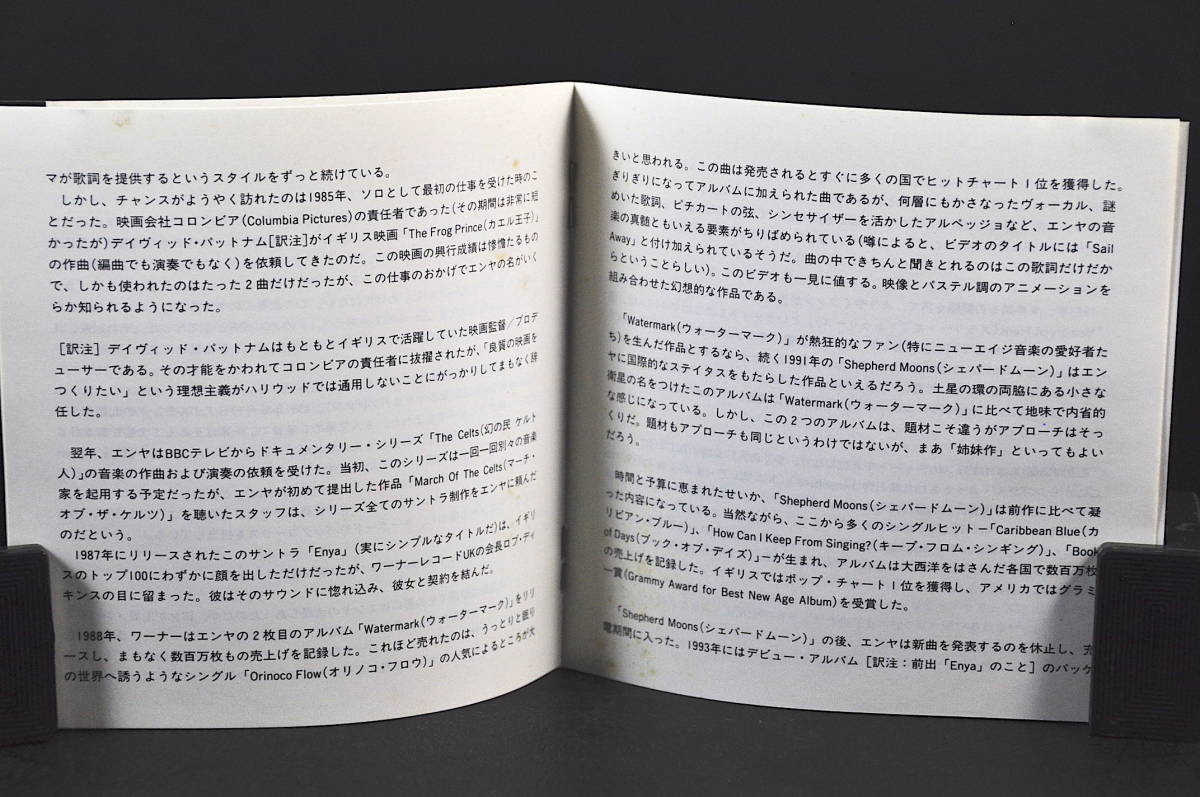 マが歌詞を提供するというスタイルをずっと続けている。
しかし、チャンスがようやく訪れたのは1985年、ソロとして最初の仕事を受けた時のこ
とだった。映画会社コロンビア(Columbia Pictures)の責任者であった(その期間は非常に短
かったが)デイヴィッド・パットナム[訳注]がイギリス映画「The Frog Prince(カエル王子)」
の作曲(編曲でも演奏でもなく)を依頼してきたのだ。この映画の興行成績は惨憺たるもの
で、しかも使われたのはたった2曲だけだったが、この仕事のおかげでエンヤの名がいく
らか知られるようになった。
[訳注] デイヴィッド・パットナムはもともとイギリスで活躍していた映画監督/プロデ
ューサーである。その才能をかわれてコロンビアの責任者に抜擢されたが、「良質の映画を
つくりたい」という理想主義がハリウッドでは通用しないことにがっかりしてまもなく辞
任した。
翌年、エンヤはBBCテレビからドキュメンタリー・シリーズ「The Celts(幻の民 ケルト
人)」の音楽の作曲および演奏の依頼を受けた。当初、このシリーズは一回一回別々の音楽
家を起用する予定だったが、エンヤが初めて提出した作品「March Of The Celts(マーチ・
オブ・ザ・ケルツ)」を聴いたスタッフは、シリーズ全てのサントラ制作をエンヤに頼んだ
のだという。
1987年にリリースされたこのサントラ「Enya」(実にシンプルなタイトルだ)は、イギリ
スのトップ100にわずかに顔を出しただけだったが、ワーナーレコードUKの会長ロブ・ディ
キンスの目に留まった。彼はそのサウンドに惚れ込み、彼女と契約を結んだ。
1988年、ワーナーはエンヤの2枚目のアルバム「Watermark(ウォーターマーク)」をリリ
ースし、まもなく数百万枚もの売上げを記録した。これほど売れたのは、うっとりと眠り
の世界へ誘うようなシングル「Orinoco Flow(オリノコ・フロウ)」の人気によるところが大
きいと思われる。この曲は発売されるとすぐに多くの国でヒットチャート1位を獲得した。
ぎりぎりになってアルバムに加えられた曲であるが、何層にもかさなったヴォーカル、謎
めいた歌詞、ピチカートの弦、シンセサイザーを活かしたアルペッジョなど、エンヤの音
楽の真髄ともいえる要素がちりばめられている(噂によると、ビデオのタイトルには「Sail
Away」と付け加えられているそうだ。曲の中できちんと聞きとれるのはこの歌詞だけだか
らということらしい)。このビデオも一見に値する。映像とパステル調のアニメーションを
組み合わせた幻想的な作品である。
「Watermark(ウォーターマーク)」が熱狂的なファン(特にニューエイジ音楽の愛好者た
ち)を生んだ作品とするなら、続く1991年の「Shepherd Moons(シェパードムーン)」はエン
ヤに国際的なステイタスをもたらした作品といえるだろう。土星の環の両脇にある小さな
衛星の名をつけたこのアルバムは「Watermark(ウォーターマーク)」に比べて地味で内省的
な感じになっている。しかし、この2つのアルバムは、題材こそ違うがアプローチはそっ
くりだ。題材もアプローチも同じというわけではないが、まあ「姉妹作」といってもよい
だろう。
時間と予算に恵まれたせいか、「Shepherd Moons(シェパードムーン)」は前作に比べて凝
った内容になっている。当然ながら、ここから多くのシングルヒットー「Caribbean Blue(カ
リビアン・ブルー)」、「How Can I Keep From Singing?(キープ・フロム・シンギング)」、「Book
of Days(ブック・オブ・デイズ)」ーが生まれ、アルバムは大西洋をはさんだ各国で数百万枚
の売上げを記録した。イギリスではポップ・チャート1位を獲得し、アメリカではグラミ
ー賞(Grammy Award for Best New Age Album)を受賞した。
「Shepherd Moons(シェパードムーン)」の後、エンヤは新曲を発表するのを休止し、充
電期間に入った。1993年にはデビュー・アルバム[訳注:前出「Enya」のこと]のパッケ